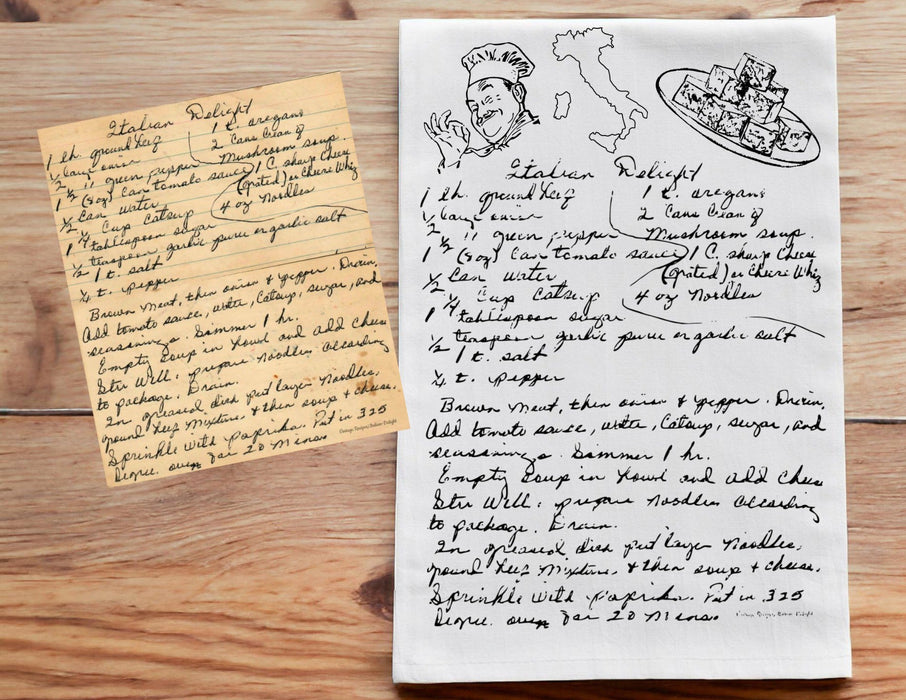 Italian Delight
1 lb. ground beef
½ large onion
½ " green pepper
1 (8 oz) can tomato sauce
½ can water
¼ cup catsup
1 tablespoon sugar
½ teaspoon garlic puree or garlic salt
1 t. salt
¼ t. pepper
1 t. oregano
2 cans cream of
Mushroom soup
1 C. sharp cheese
(grated) or Cheese Whiz
4 oz noodles
Brown meat, then onion & pepper. Drain.
Add tomato sauce, water, catsup, sugar, and
seasonings. Simmer 1 hr.
Empty soup in bowl and add cheese
Stir well. prepare noodles according
to package. Drain.
In greased dish put layer noodles,
ground beef mixture, & then soup + cheese.
Sprinkle with paprika. Put in 325
degree. oven for 20 mins.
Italian Delight
1 lb. ground beef
½ large onion
½ " green pepper
1 (8 oz) can tomato sauce
½ can water
¼ cup catsup
1 tablespoon sugar
½ teaspoon garlic puree or garlic salt
1 t. salt
¼ t. pepper
1 t. oregano
2 cans cream of
Mushroom soup
1 C. sharp cheese
(grated) or Cheese Whiz
4 oz noodles
Brown meat, then onion & pepper. Drain.
Add tomato sauce, water, catsup, sugar, and
seasonings. Simmer 1 hr.
Empty soup in bowl and add cheese
Stir well. prepare noodles according
to package. Drain.
In greased dish put layer noodles,
ground beef mixture, & then soup + cheese.
Sprinkle with paprika. Put in 325
degree. oven for 20 mins.